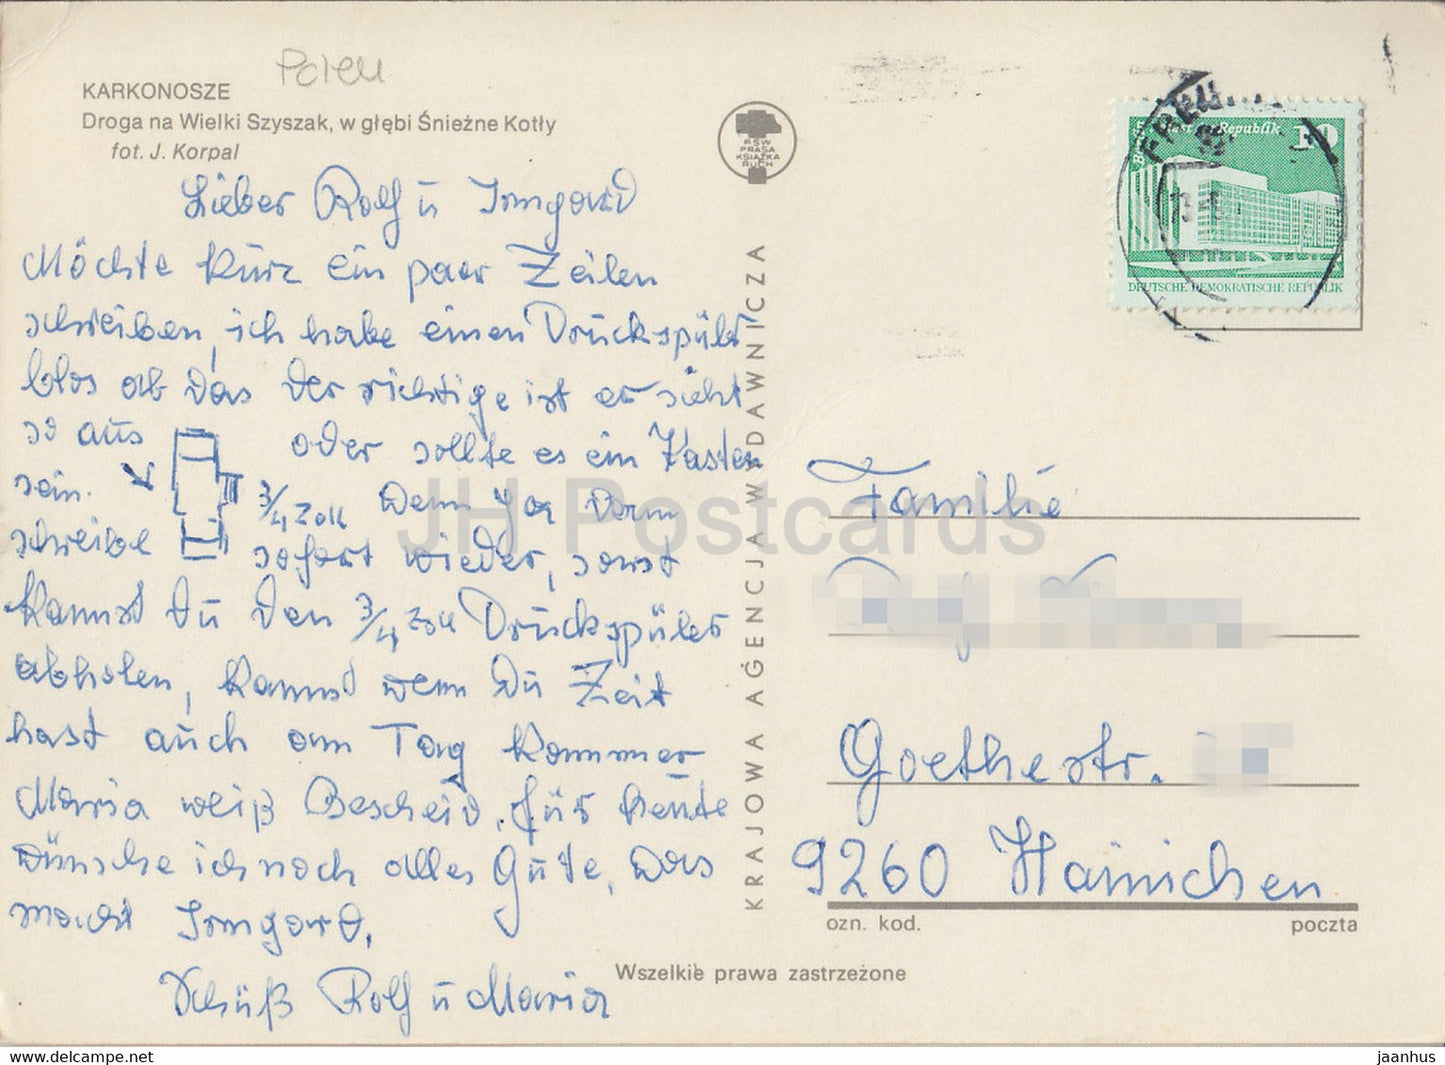 Polen
KARKONOSZE
Droga na Wielki Szyszak, w głębi Śnieżne Kotły
fot. J. Korpal
Lieber Rolf u Irmgard
Möchte kurz ein paar Zeilen
schreiben, ich habe einen Druckspüler
blos ob das der richtige ist er sieht
so aus oder sollte es ein Kasten
sein. 3/4 Zoll wenn ja dann
schreibe sofort wieder, sonst
kannst du den 3/4 Zoll Druckspüler
abholen, kannst wenn du Zeit
hast auch am Tag kommer
Maria weiß Bescheid. für heute
wünsche ich noch alles Gute, was
macht Irmgard.
Tschüß Rolf u Maria
RSW
PRASA
KSIĄŻKA
RUCH
KRAJOWA AGENCJA WYDAWNICZA
10
Republik
DEUTSCHE DEMOKRATISCHE REPUBLIK
Familie
Goethestr.
9260 Hainichen
ozn. kod. poczta
Wszelkie prawa zastrzeżone
JH Postcards
www.delcampe.net
jaanhus